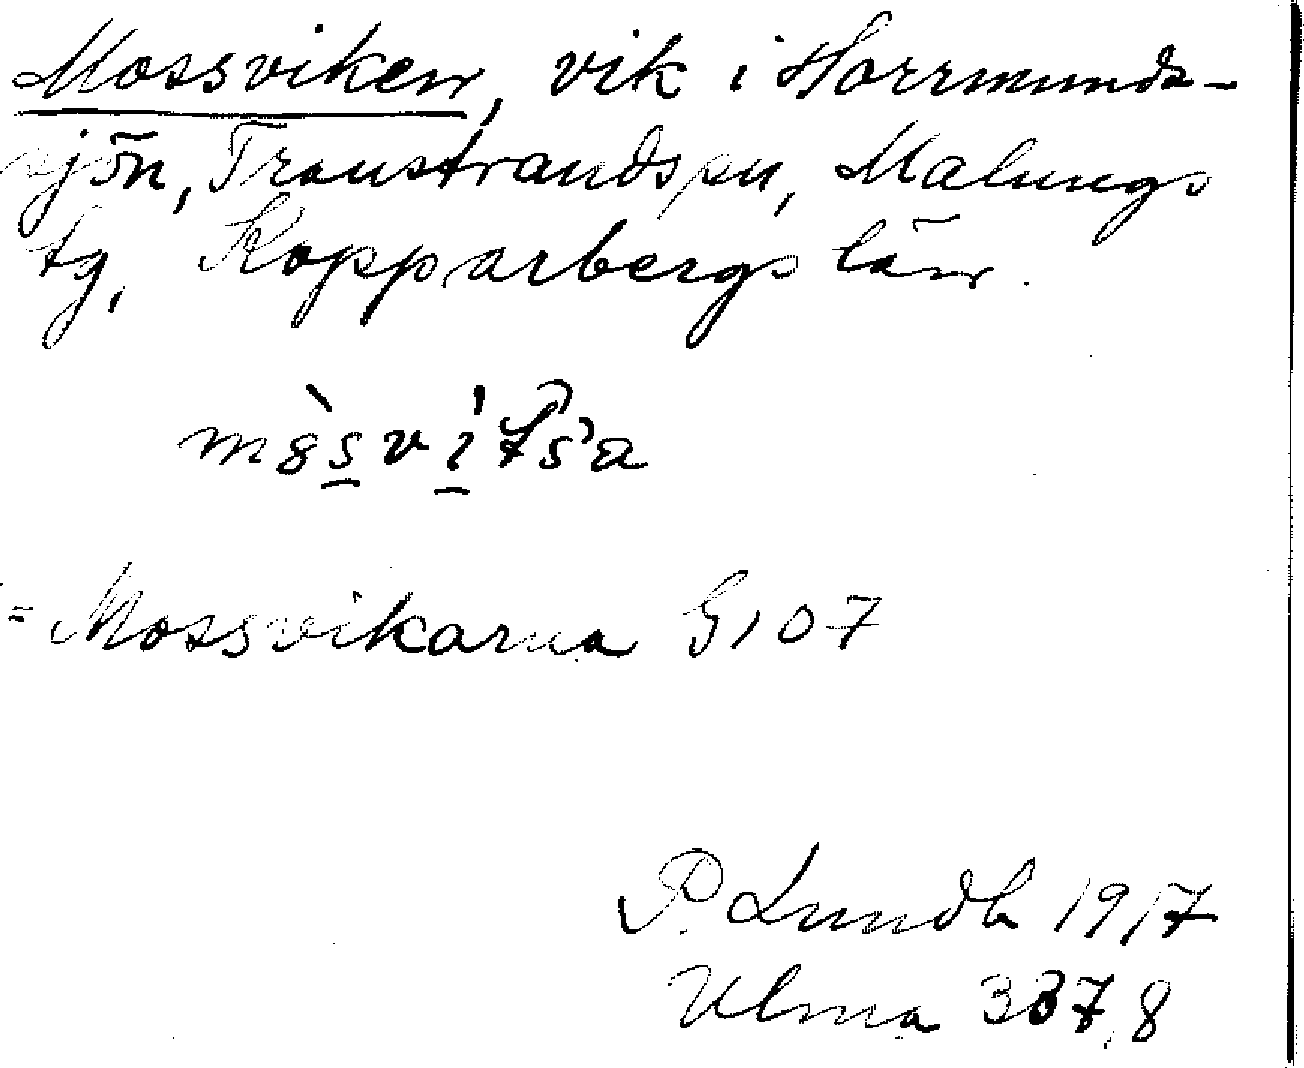 Mossviken, vik i Horrmunds-
sjön, Transtrands sn, Malungs
tg, Kopparbergs län.
= Mossvikarna G 107
P. Lundb 1917
Ulma 337,8